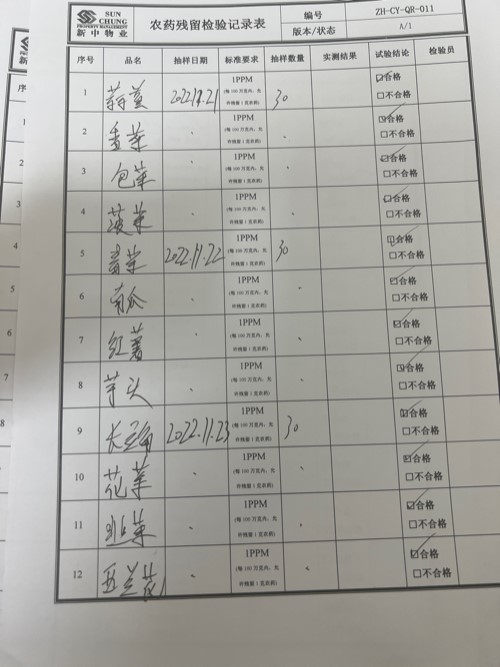 SUN
CHUNG
PROPERTY MANAGEMENT
新中物业
农药残留检验记录表
编号
ZH-CY-QR-011
版本/状态
A/1
序号 品名 抽样日期 标准要求 抽样数量 实测结果 试验结论 检验员
1 蒜黄 2022.11.21 1PPM (每100万克内，允许残留1克农药) 30 ☑合格 □不合格
2 香菜 、 1PPM (每100万克内，允许残留1克农药) 、 ☑合格 □不合格
3 包菜 、 1PPM (每100万克内，允许残留1克农药) 、 ☑合格 □不合格
4 菠菜 、 1PPM (每100万克内，允许残留1克农药) 、 ☑合格 □不合格
5 青菜 2022.11.22 1PPM (每100万克内，允许残留1克农药) 30 ☑合格 □不合格
6 南瓜 、 1PPM (每100万克内，允许残留1克农药) 、 ☑合格 □不合格
7 红薯 、 1PPM (每100万克内，允许残留1克农药) 、 ☑合格 □不合格
8 芋头 、 1PPM (每100万克内，允许残留1克农药) 、 ☑合格 □不合格
9 长豆角 2022.11.23 1PPM (每100万克内，允许残留1克农药) 30 ☑合格 □不合格
10 花菜 、 1PPM (每100万克内，允许残留1克农药) 、 ☑合格 □不合格
11 韭菜 、 1PPM (每100万克内，允许残留1克农药) 、 ☑合格 □不合格
12 西兰花 、 1PPM (每100万克内，允许残留1克农药) 、 ☑合格 □不合格